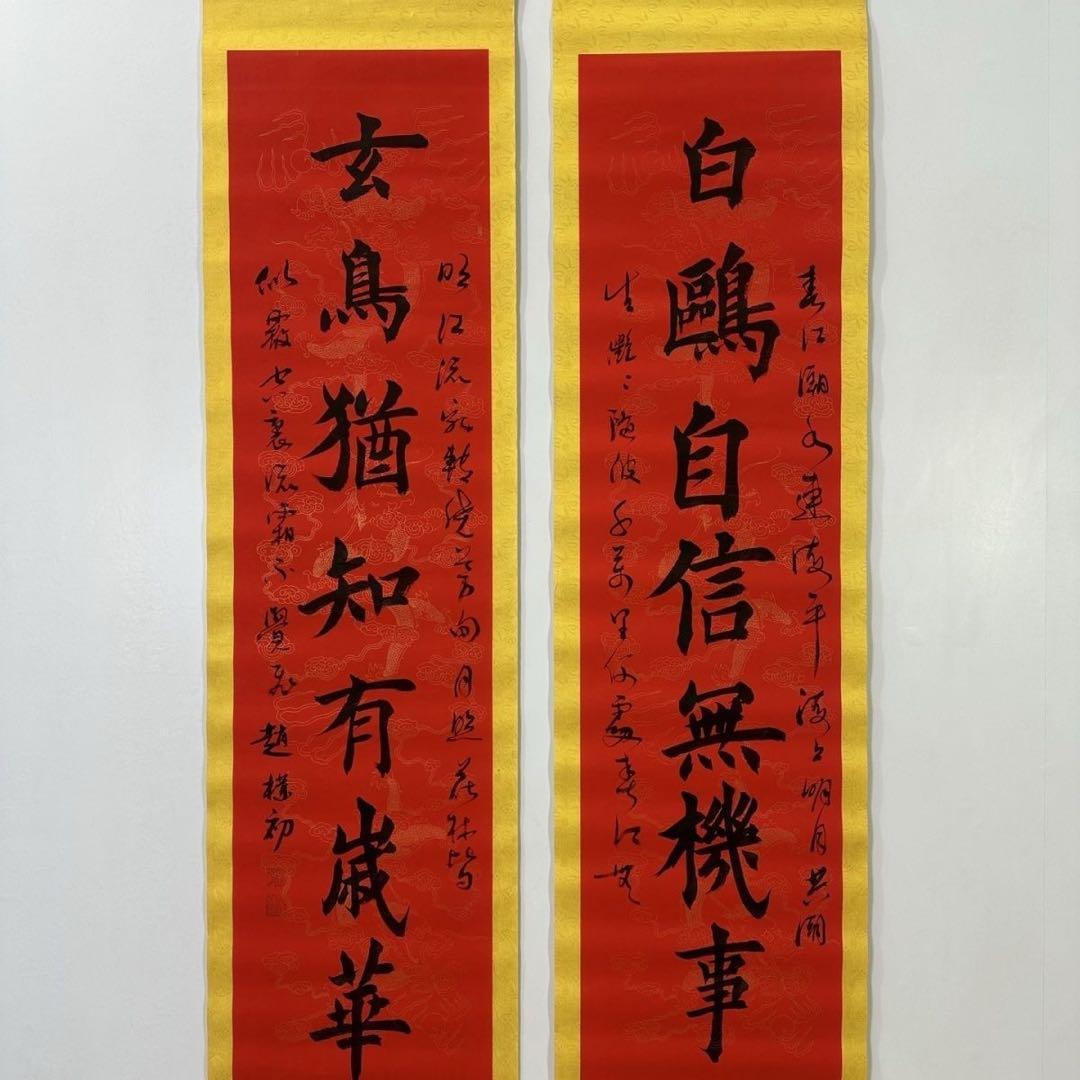 春江潮水連海平海上明月共潮
白鷗自信無機事
生灩〻隨波千萬里何處春江無
明江流宛轉繞芳甸月照花林皆
玄鳥猶知有歲華
似霰空裏流霜不覺飛 趙樸初